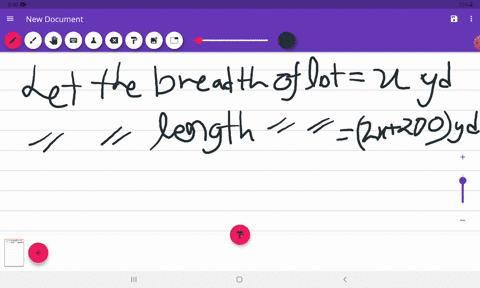 New Document
Let the breadth of lot = x yd
〃 〃 length 〃 〃 = (2x+200) yd